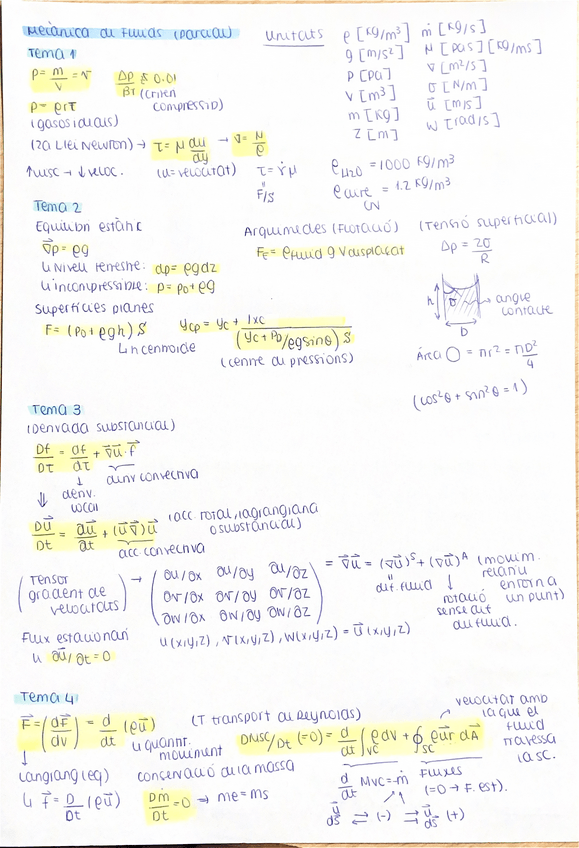 Mecànica de Fluids (parcial)
Unitats
ρ [kg/m³]
g [m/s²]
P [Pa]
V [m³]
m [kg]
z [m]
ṁ [kg/s]
μ [Pas] [kg/ms]
ν [m²/s]
σ [N/m]
u⃗ [m/s]
w [rad/s]
Tema 1
ρ = m/V = v
Δρ/ρ₁ ≤ 0.01
(criteri compressib)
p = ρrT
(gasos ideals)
(2a Llei Newton) → τ = μ du/dy → ν = μ/ρ
↑visc → ↓veloc. (u = velocitat) τ = γ̇μ
F/S
ρ H2O = 1000 kg/m³
ρ aire = 1.2 kg/m³
Tema 2
Equilibri estàtic
∇⃗p = ρg
↳ Nivell terrestre: dp = ρgdz
↳ incompressible: p = p₀ + ρg
Superfícies planes
F = (P₀ + ρgh) S
↳ h centroide
y_CP = y_C + Ixc / (y_C + P₀/ρg sinθ) S
(centre de pressions)
Arquimedes (Flotació)
F_E = ρ fluid g V desplaçat
(Tensió superficial)
Δp = 2σ/R
h
σ
D
→ angle contacte
Àrea ◯ = πr² = πD²/4
(cos²θ + sin²θ = 1)
Tema 3
(Derivada substancial)
Df/Dτ = df/dτ + ∇⃗u⃗·f⃗
deriv. local
deriv convectiva
Du⃗/Dt = ∂u⃗/∂t + (u⃗∇⃗)u⃗
(acc total, lagrangiana o substancial)
acc convectiva
(Tensor gradient de velocitats) →
∂u/∂x ∂u/∂y ∂u/∂z
∂v/∂x ∂v/∂y ∂v/∂z
∂w/∂x ∂w/∂y ∂w/∂z
= ∇⃗u⃗ = (∇⃗u⃗)ˢ + (∇⃗u⃗)ᴬ (movim. relatiu entorn a un punt)
dif. fluid
rotació sense dif du fluid.
u(x,y,z), v(x,y,z), w(x,y,z) = u⃗(x,y,z)
Flux estacionari
↳ ∂u⃗/∂t = 0
Tema 4
F⃗ = (dF⃗/dV) = d/dt (ρu⃗)
↳ quant. moviment
Langrang (eq)
↳ f⃗ = D/Dt (ρu⃗)
(T transport de Reynolds)
DMsc/Dt (=0) = d/dt ∫VC ρ dv + ∮SC ρu⃗r dA⃗
velocitat amb la que el fluid travessa la SC.
conservació de la massa
Dm/Dt = 0 → me = ms
d/dt Mvc = ṁ
Fluxes
(=0 → F. est).
u⃗ ds⃗ ⇄ (-) ⇉ u⃗ ds⃗ (+)